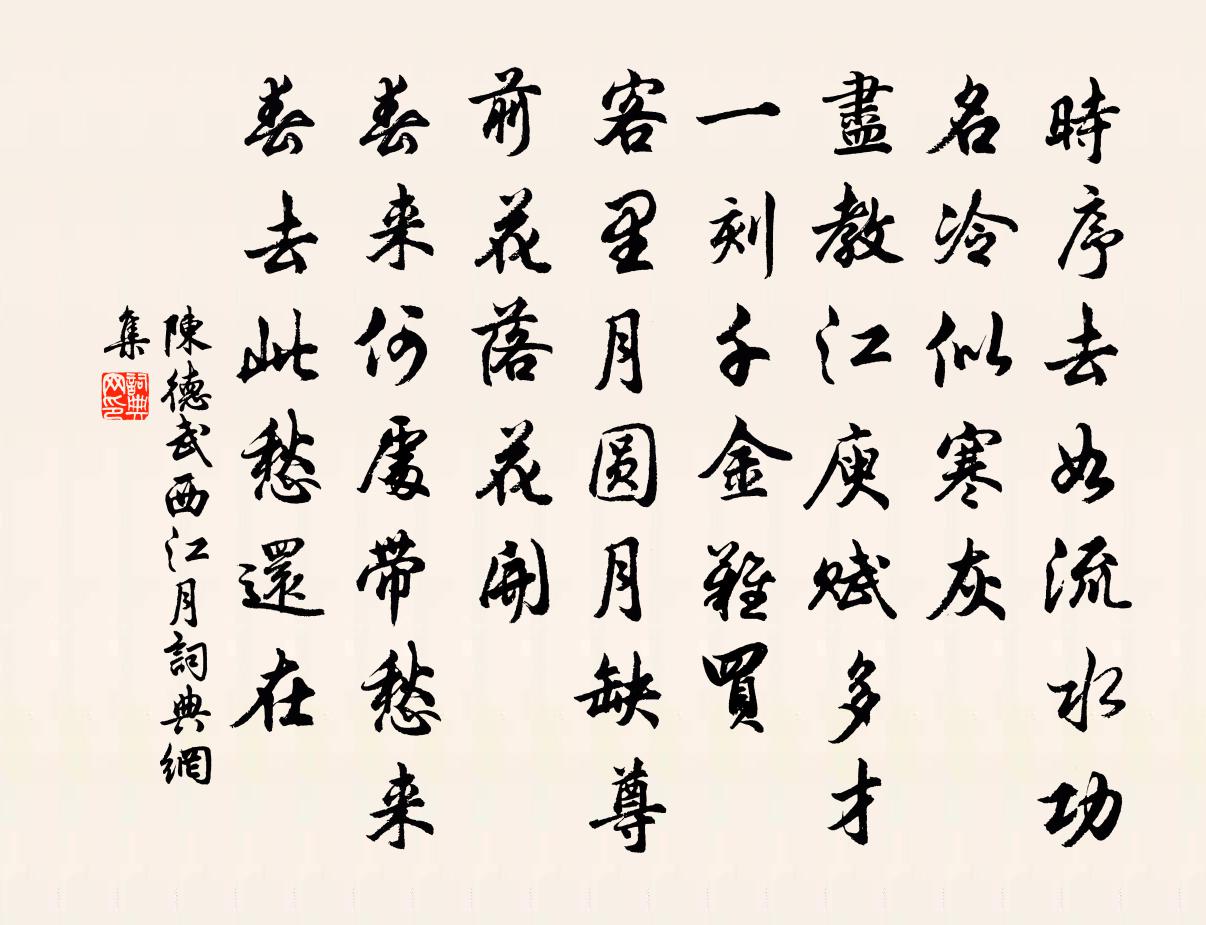 時序去如流水功
名冷似寒灰
盡教江庾賦多才
一刻千金難買
客里月圆月缺尊
前花落花開
春来何處帶愁来
春去此愁還在
陳德武西江月詞典網
集
詞典
网印